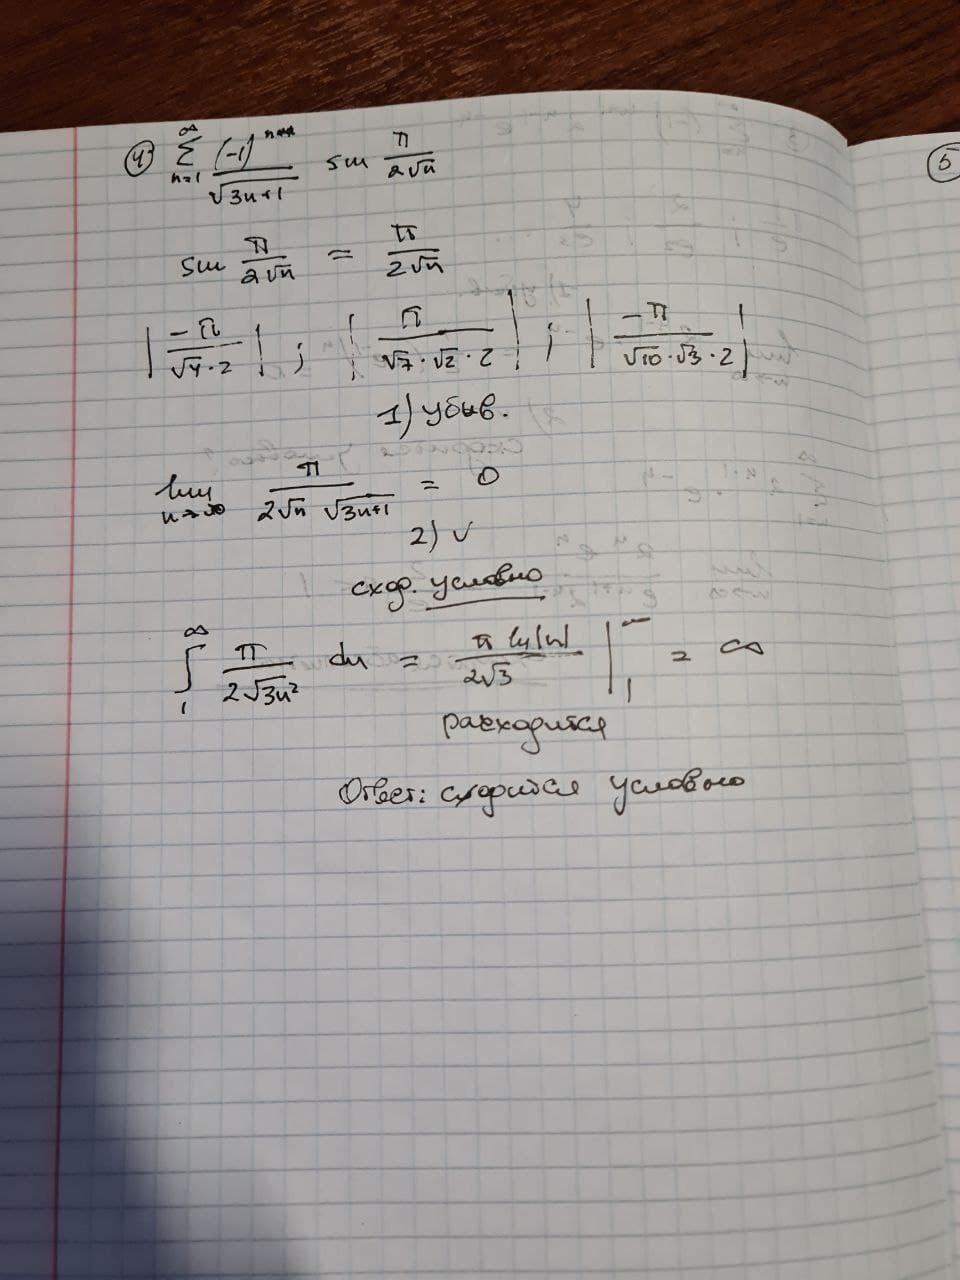 4) ∞ Σ n=1 (-1)ⁿ / √3n+1 sin π / 2√n
5
sin π / 2√n = π / 2√n
| -π / √4·2 | ; | π / √7·√2·2 | ; | -π / √10·√3·2 |
1) убыв.
lim n→∞ π / 2√n √3n+1 = 0
2) ✓
сход. условно
∞ ∫ 1 π / 2√3n² dn = π ln|n| / 2√3 | ∞ 1 = ∞
расходится
Ответ: сходится условно